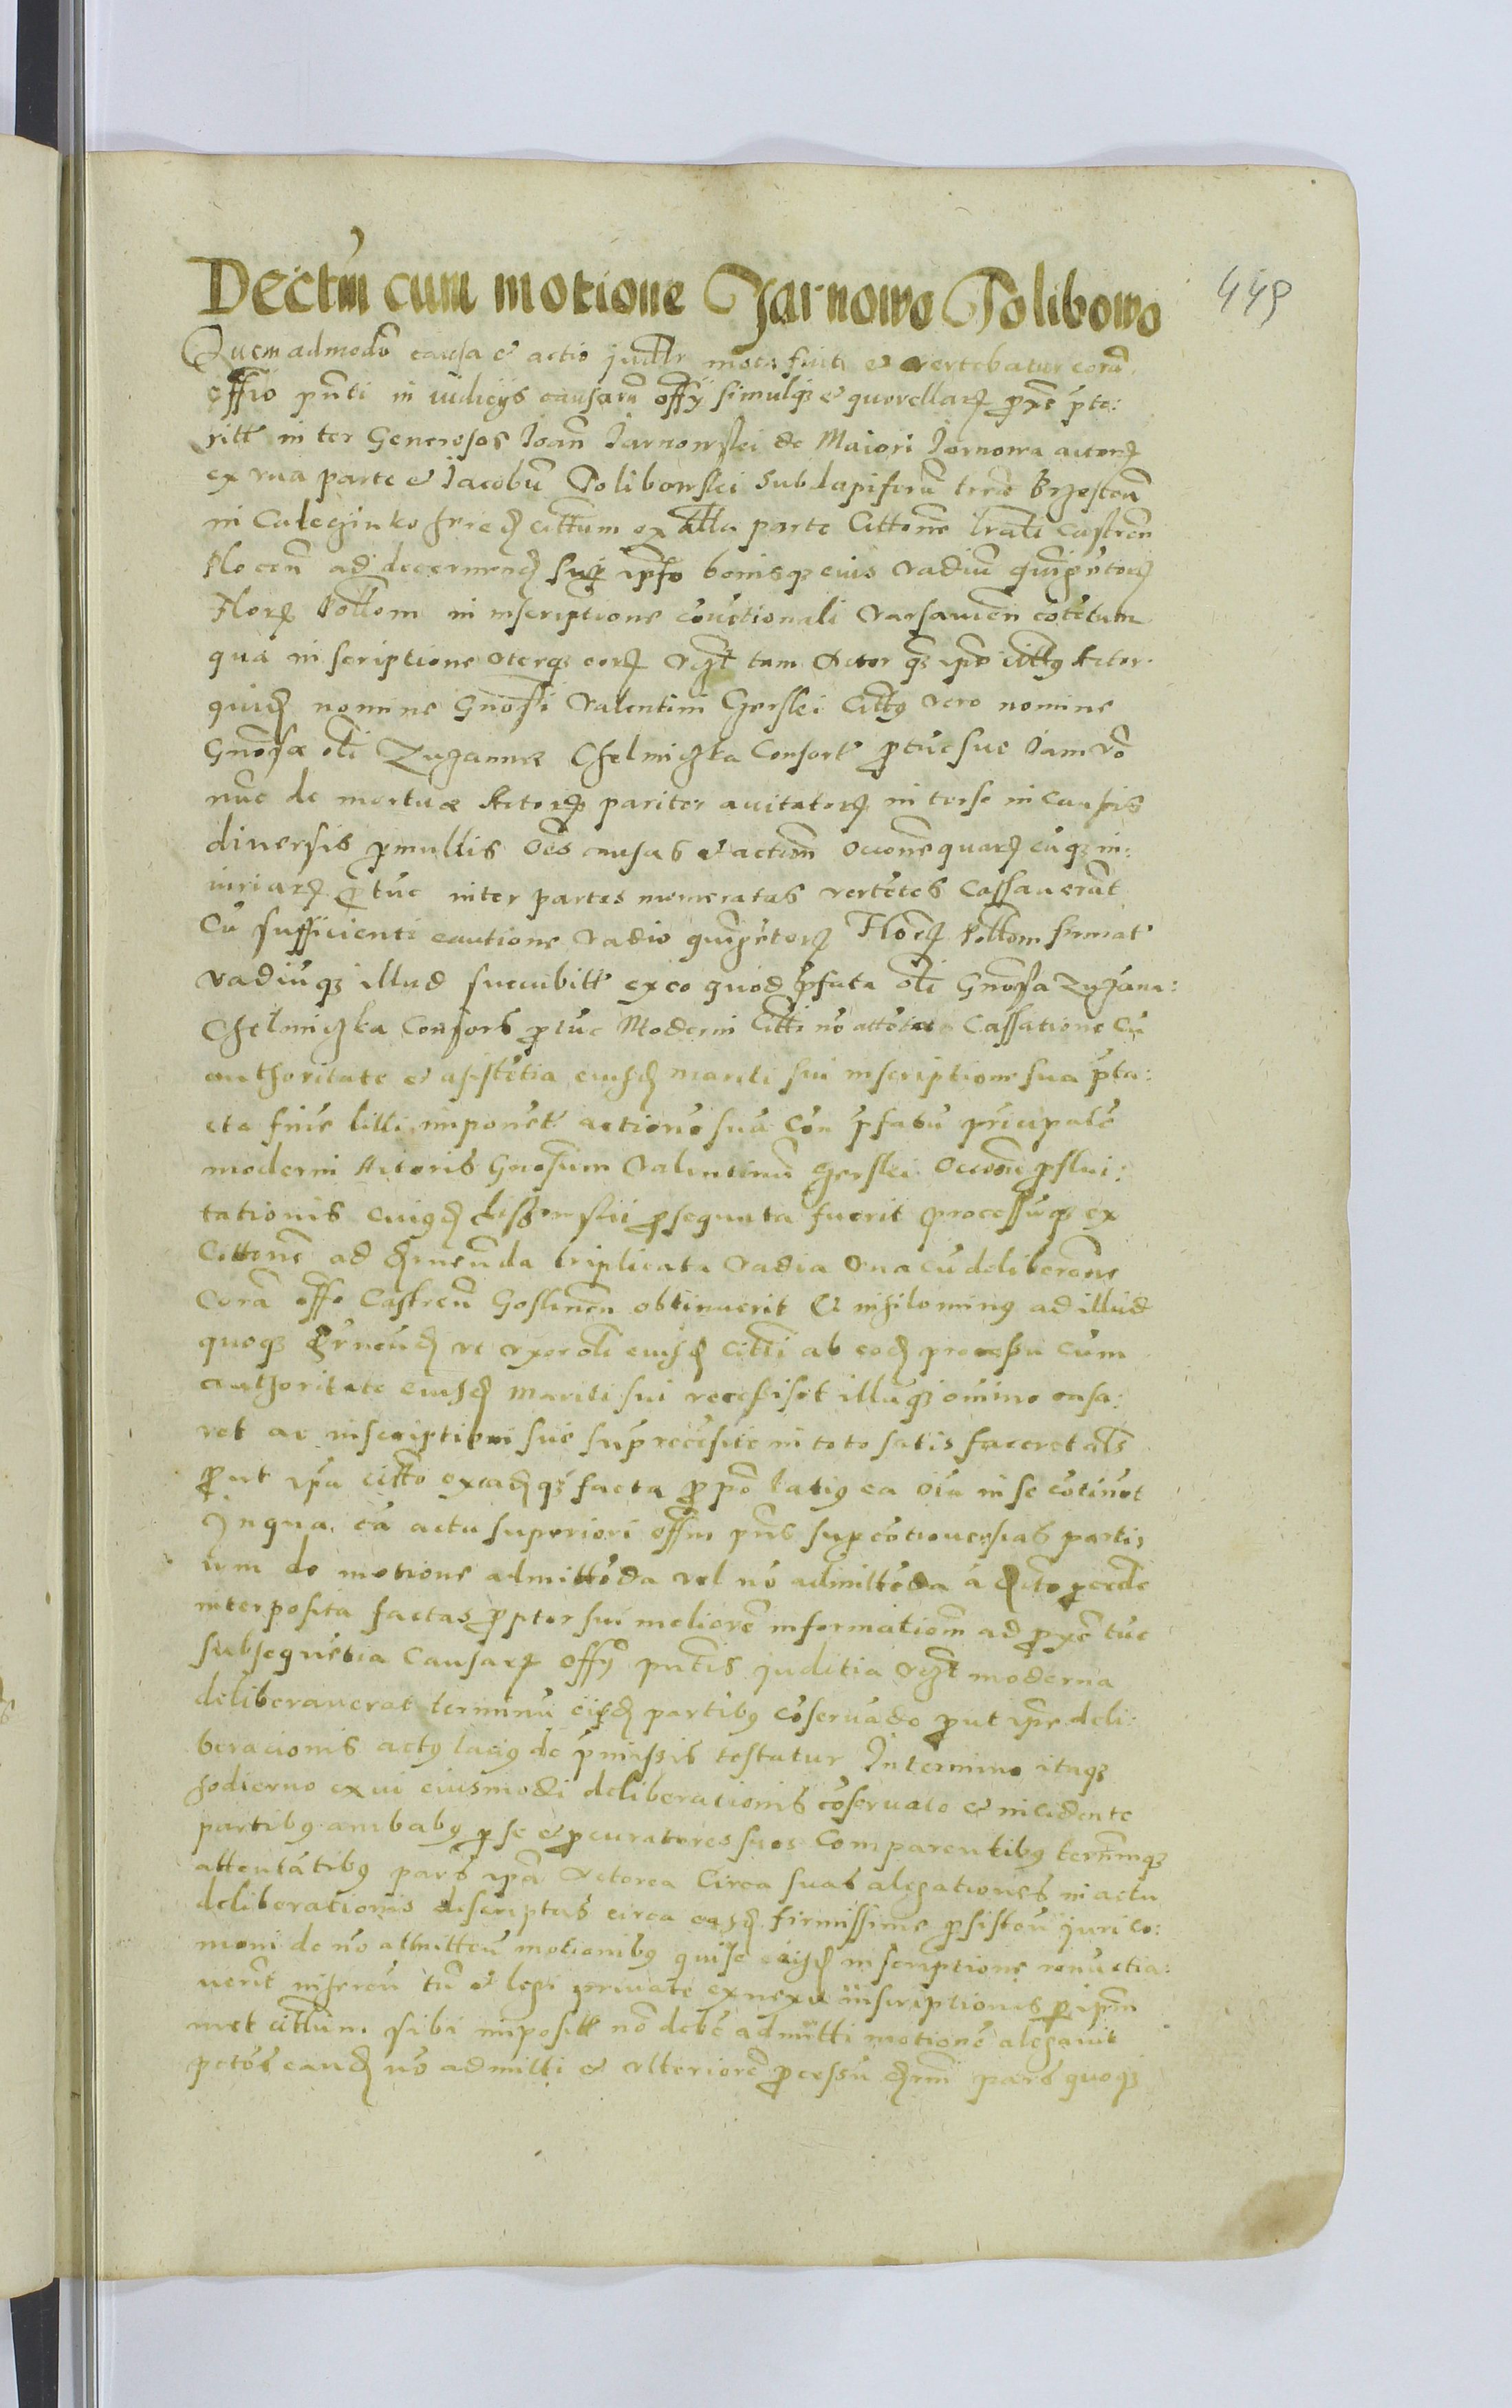 Dectm cum motione Jarnowo Tolibowo
449
Quemadmodū causa et actio judlr mota fuit et vertebatur corā
offio pnti in iudicijs causarū offy simulqз et querellarꝝ ꝓxe pte:
ritt inter Generosos Joan Jarnowskei de Maiori Jarnowa actorꝝ
ex vna parte et Jacobū Tolibowskei subdapiferū terre Brzesten
in cittum ex alla parte Cittone lrali castren
ad decernend suꝑ ipso bonisqз eius vadiū quingetorꝝ
Florꝝ Pollom in inscriptione Varsavien cotetum
qua inscriptione vterqз eorꝝ tam Actor qз ipse cittꝰ Actor
quidꝫ nomine Gnosi Valentini Gerskei Cittꝰ vero nomine
Gnosæ oli Zuzannæ Chelmiczka Consort ꝓtuc sue Jam vo
nuc de mortuæ Actorꝝ pariter in terse in causis
diuersis ꝓmultis oēs causas et action occone quarꝝ cuqз in:
iuriarꝝ ꝓ tuc inter partes memoratas vertetes cassauerut
Cū sufficienti cautione vadio quingetorꝝ Florꝝ Pollom firmat
vadiuqз illud succubitt ex eo quod pfata oli Gnosa Zuzana:
Chelmiczka Consors ꝓtuc Moderni Citti no attetate Cassatione cu
authoritate et asistetia eiusdꝫ mariti sui inscriptione sua pta:
cta fine litti imponet actione sua con pfatu pricipale
moderni Actoris Gnosum Valentinu Gerskei occone
tationis eiusdꝫ ꝓsequuta fuerit processuqз ex
Cittone ad triplicata vadia vna cu deliberone
Corā offo Castren Gostinen obtinuerit Et nihilominꝰ ad illud
quoqз vt vxor oli eiusdꝫ citti ab eodꝫ processu cum
authoritate eiusdꝫ Mariti sui recesisset illuqз omnino casa:
ret ac inscriptioni sue in toto satis faceret als
ꝓut ipa citto exeadꝫqз facta ꝓ latiꝰ ea oia in se cotinet
In qua ea actu superiori offm pns sup cotrouersias parti
um de motione admitteda vel no admitteda á
interposita factas ꝓpter sui meliorē informationē ad ꝓxe tuc
subsequetia Causarꝝ offy pntis juditia moderna
deliberauerat terminū eisdꝫ partibꝰ coseruado ꝓut ipse deli:
beracionis actꝰ laciꝰ de pmissis testatur In termino itaqз
hodierno ex vi eiusmodi deliberationis coseruato et incidente
partibꝰ ambabꝰ ꝑ se et ꝓcuratores suos Comparentibꝰ terminqз
attentatibꝰ pars ipa Actorea Circa suas alegationes in actu
deliberationis discriptas circa easdꝫ firmissime ꝑsisten juri co:
moni de no admitten motionibꝰ quise eiusdꝫ inscriptione renuctia:
uerit inheren tū et legi priuate ex nexu inscriptionis ꝑ ipsm
met cittum sibi impositt no debe admitti motione alegauit
petes eandꝫ no admitti et vlteriorē ꝓcessu pars quoqз